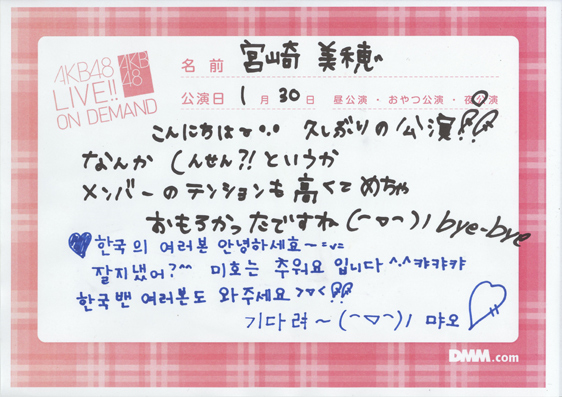 AKB48
LIVE!!
ON DEMAND
AKB
48
名前 宮崎 美穂
公演日 1月30日 昼公演・おやつ公演・夜公演
こんにちは 久しぶりの公演!!
なんか しんせん?!というか
メンバーのテンションも高くてめちゃ
おもろかったですね(⌒▽⌒)ノbye-bye
한국의 여러본 안녕하세효~=v=
잘지냈어?^^ 미호는 추워요 입니다^.^캬캬캬
한국밴 여러본도 와주세요>▽<!!
기다려~(⌒▽⌒)ノ 먀오
DMM.com